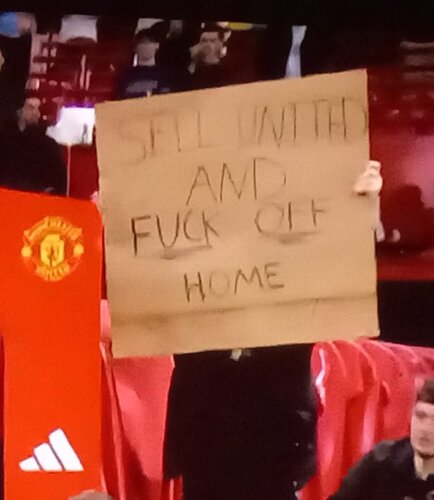 SELL UNITED
AND
FUCK OFF
HOME
MANCHESTER
UNITED